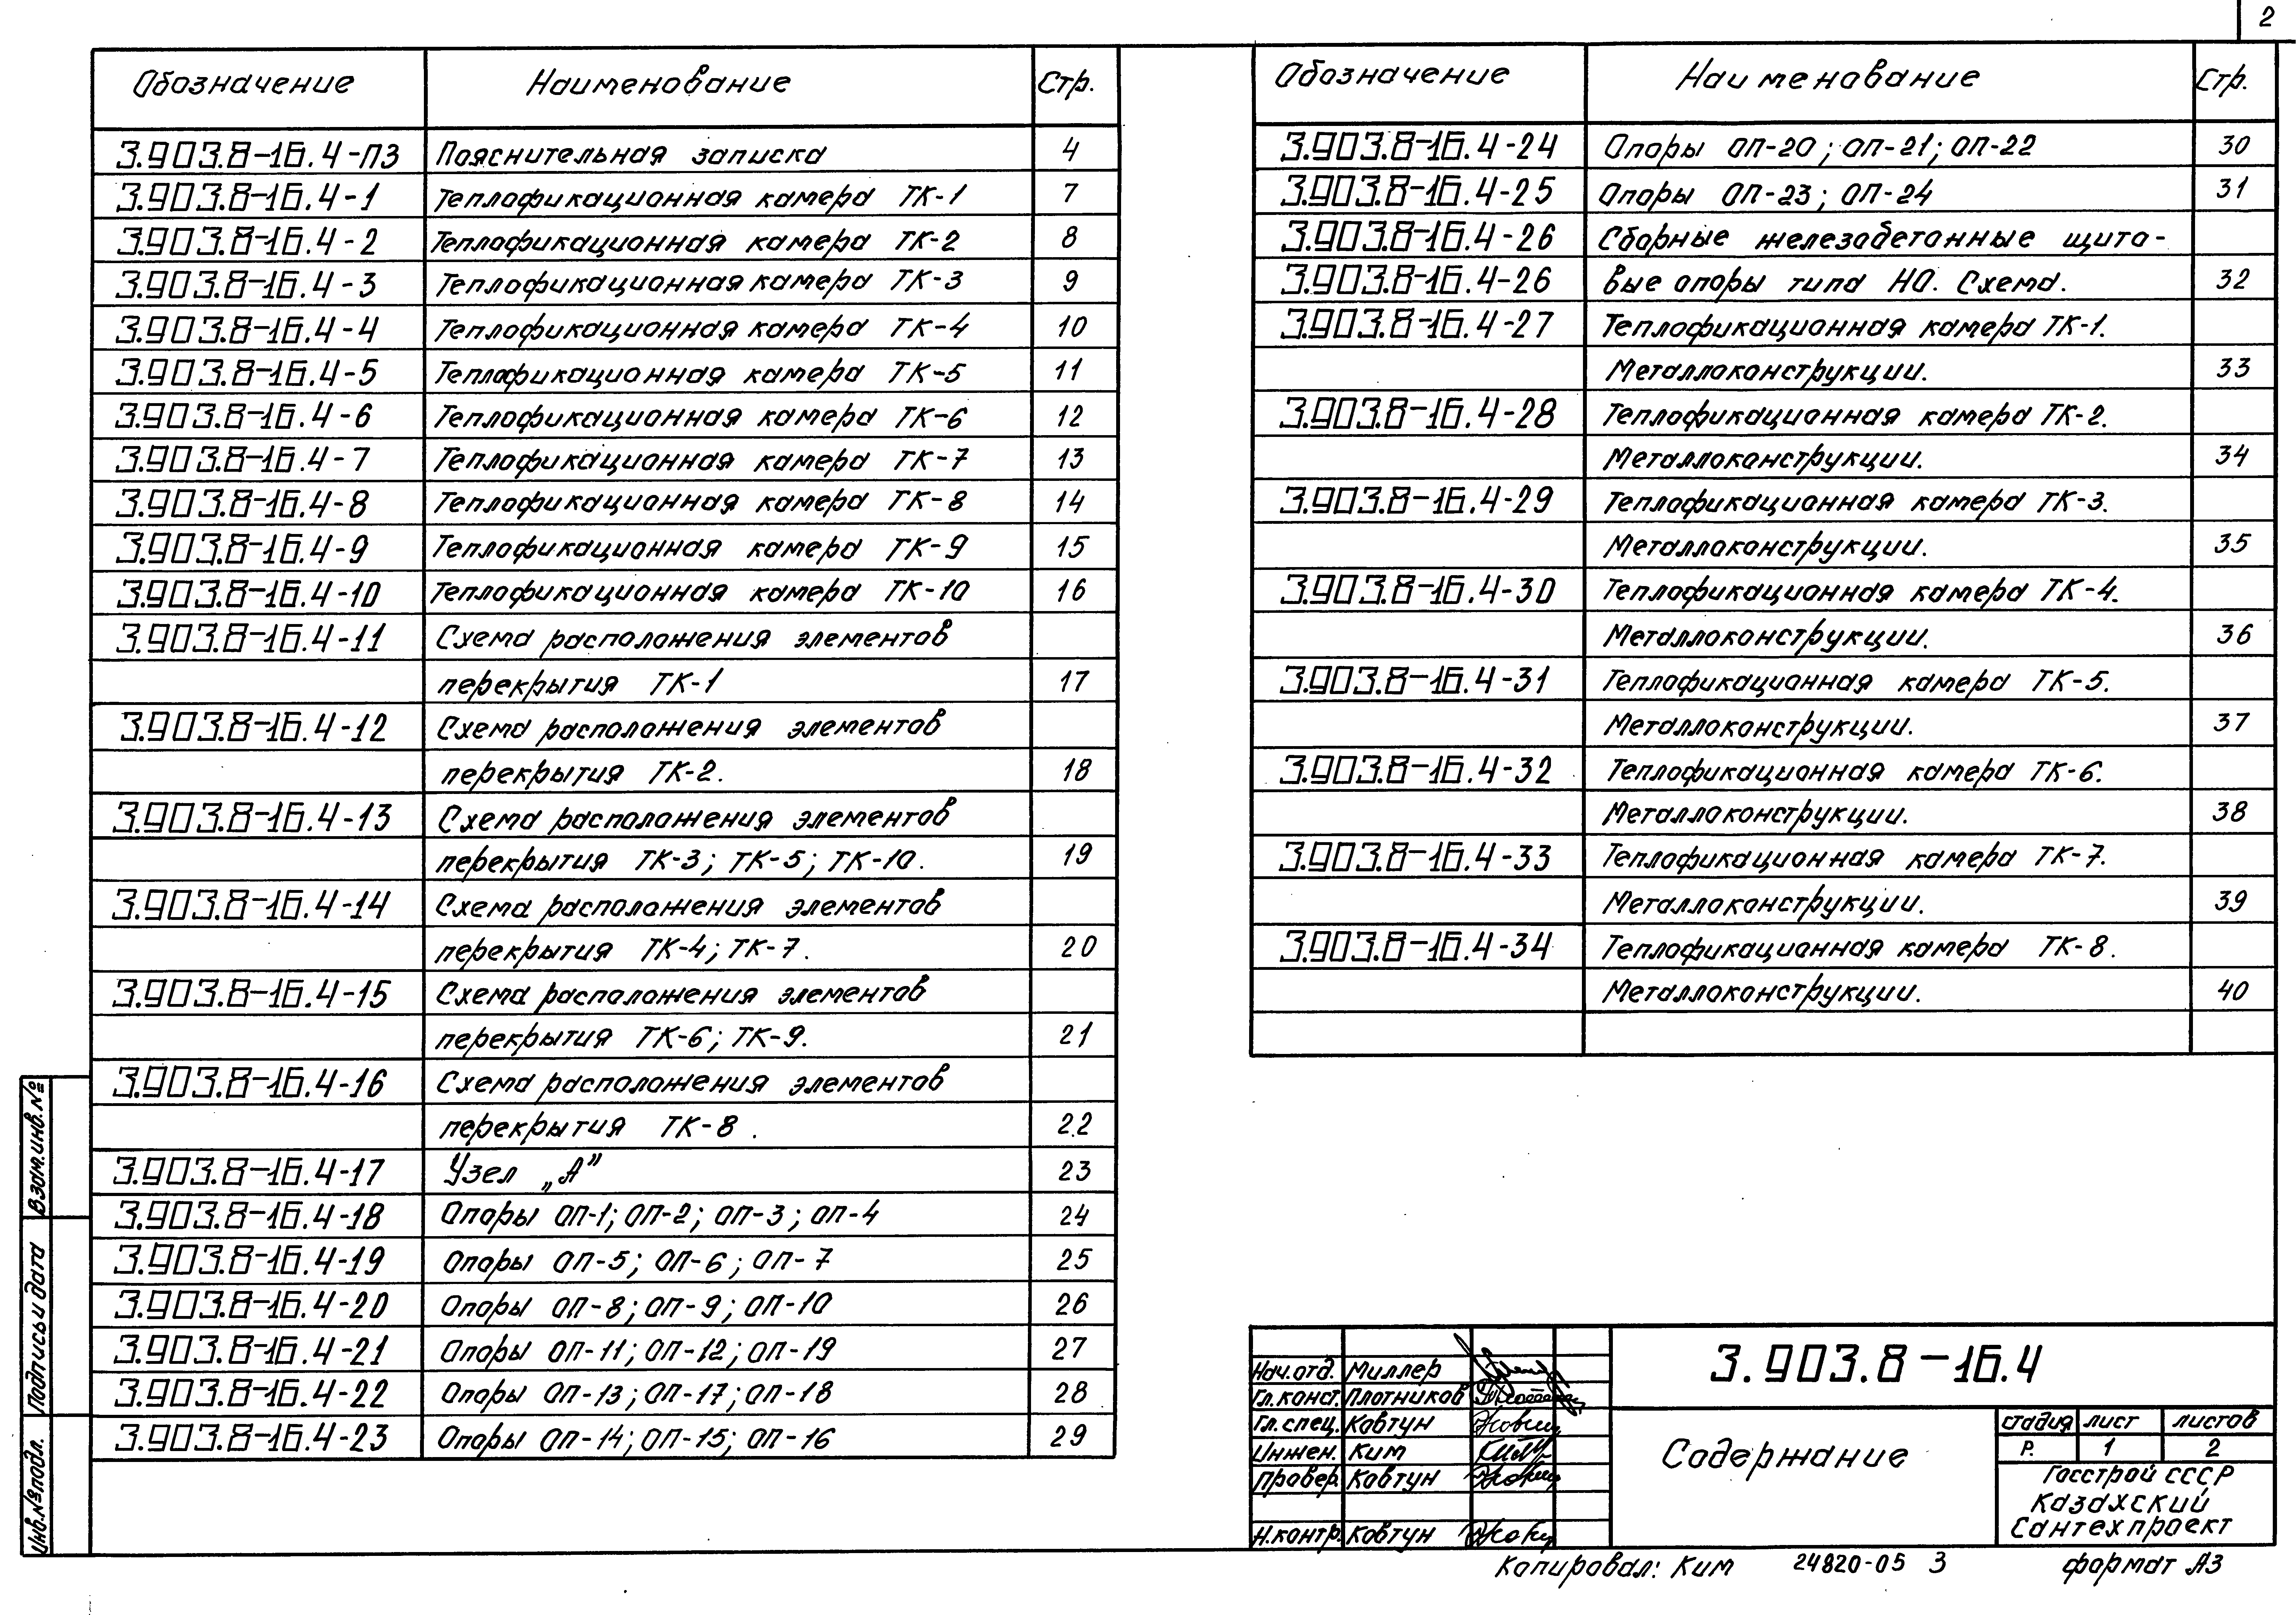 2
Обозначение Наименование Стр.
3.903.8-16.4-ПЗ Пояснительная записка 4
3.903.8-16.4-1 Теплофикационная камера ТК-1 7
3.903.8-16.4-2 Теплофикационная камера ТК-2 8
3.903.8-16.4-3 Теплофикационная камера ТК-3 9
3.903.8-16.4-4 Теплофикационная камера ТК-4 10
3.903.8-16.4-5 Теплофикационная камера ТК-5 11
3.903.8-16.4-6 Теплофикационная камера ТК-6 12
3.903.8-16.4-7 Теплофикационная камера ТК-7 13
3.903.8-16.4-8 Теплофикационная камера ТК-8 14
3.903.8-16.4-9 Теплофикационная камера ТК-9 15
3.903.8-16.4-10 Теплофикационная камера ТК-10 16
3.903.8-16.4-11 Схема расположения элементов
перекрытия ТК-1 17
3.903.8-16.4-12 Схема расположения элементов
перекрытия ТК-2. 18
3.903.8-16.4-13 Схема расположения элементов
перекрытия ТК-3; ТК-5; ТК-10. 19
3.903.8-16.4-14 Схема расположения элементов
перекрытия ТК-4; ТК-7. 20
3.903.8-16.4-15 Схема расположения элементов
перекрытия ТК-6; ТК-9. 21
3.903.8-16.4-16 Схема расположения элементов
перекрытия ТК-8. 22
3.903.8-16.4-17 Узел „А” 23
3.903.8-16.4-18 Опоры ОП-1; ОП-2; ОП-3; ОП-4 24
3.903.8-16.4-19 Опоры ОП-5; ОП-6; ОП-7 25
3.903.8-16.4-20 Опоры ОП-8; ОП-9; ОП-10 26
3.903.8-16.4-21 Опоры ОП-11; ОП-12; ОП-19 27
3.903.8-16.4-22 Опоры ОП-13; ОП-17; ОП-18 28
3.903.8-16.4-23 Опоры ОП-14; ОП-15; ОП-16 29
Обозначение Наименование Стр.
3.903.8-16.4-24 Опоры ОП-20; ОП-21; ОП-22 30
3.903.8-16.4-25 Опоры ОП-23; ОП-24 31
3.903.8-16.4-26 Сборные железобетонные щито-
3.903.8-16.4-26 вые опоры типа НО. Схема. 32
3.903.8-16.4-27 Теплофикационная камера ТК-1.
Металлоконструкции. 33
3.903.8-16.4-28 Теплофикационная камера ТК-2.
Металлоконструкции. 34
3.903.8-16.4-29 Теплофикационная камера ТК-3.
Металлоконструкции. 35
3.903.8-16.4-30 Теплофикационная камера ТК-4.
Металлоконструкции. 36
3.903.8-16.4-31 Теплофикационная камера ТК-5.
Металлоконструкции. 37
3.903.8-16.4-32 Теплофикационная камера ТК-6.
Металлоконструкции. 38
3.903.8-16.4-33 Теплофикационная камера ТК-7.
Металлоконструкции. 39
3.903.8-16.4-34 Теплофикационная камера ТК-8.
Металлоконструкции. 40
Взам.инв.№
Подпись и дата
Инв.№ подл.
Нач.отд. Миллер
Гл.конст. Плотников
Гл.спец. Ковтун
Инжен. Ким
Провер. Ковтун
Н.контр. Ковтун
3.903.8-16.4
Содержание
стадия лист листов
Р. 1 2
Госстрой СССР
Казахский
Сантехпроект
Копировал: Ким 24820-05 3 формат А3